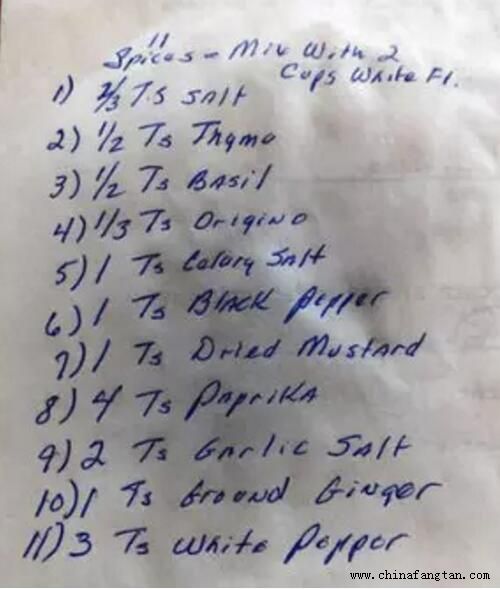 11
Spices - Mix With 2
Cups White Fl.
1) 2/3 TS SALT
2) 1/2 Ts Thyme
3) 1/2 Ts BASil
4) 1/3 Ts Origino
5) 1 Ts Celery SAlt
6) 1 Ts BlAcK Pepper
7) 1 Ts Dried MustArd
8) 4 Ts PApriKA
9) 2 Ts GArlic SAlt
10) 1 Ts Ground Ginger
11) 3 Ts White Pepper
www.chinafangtan.com